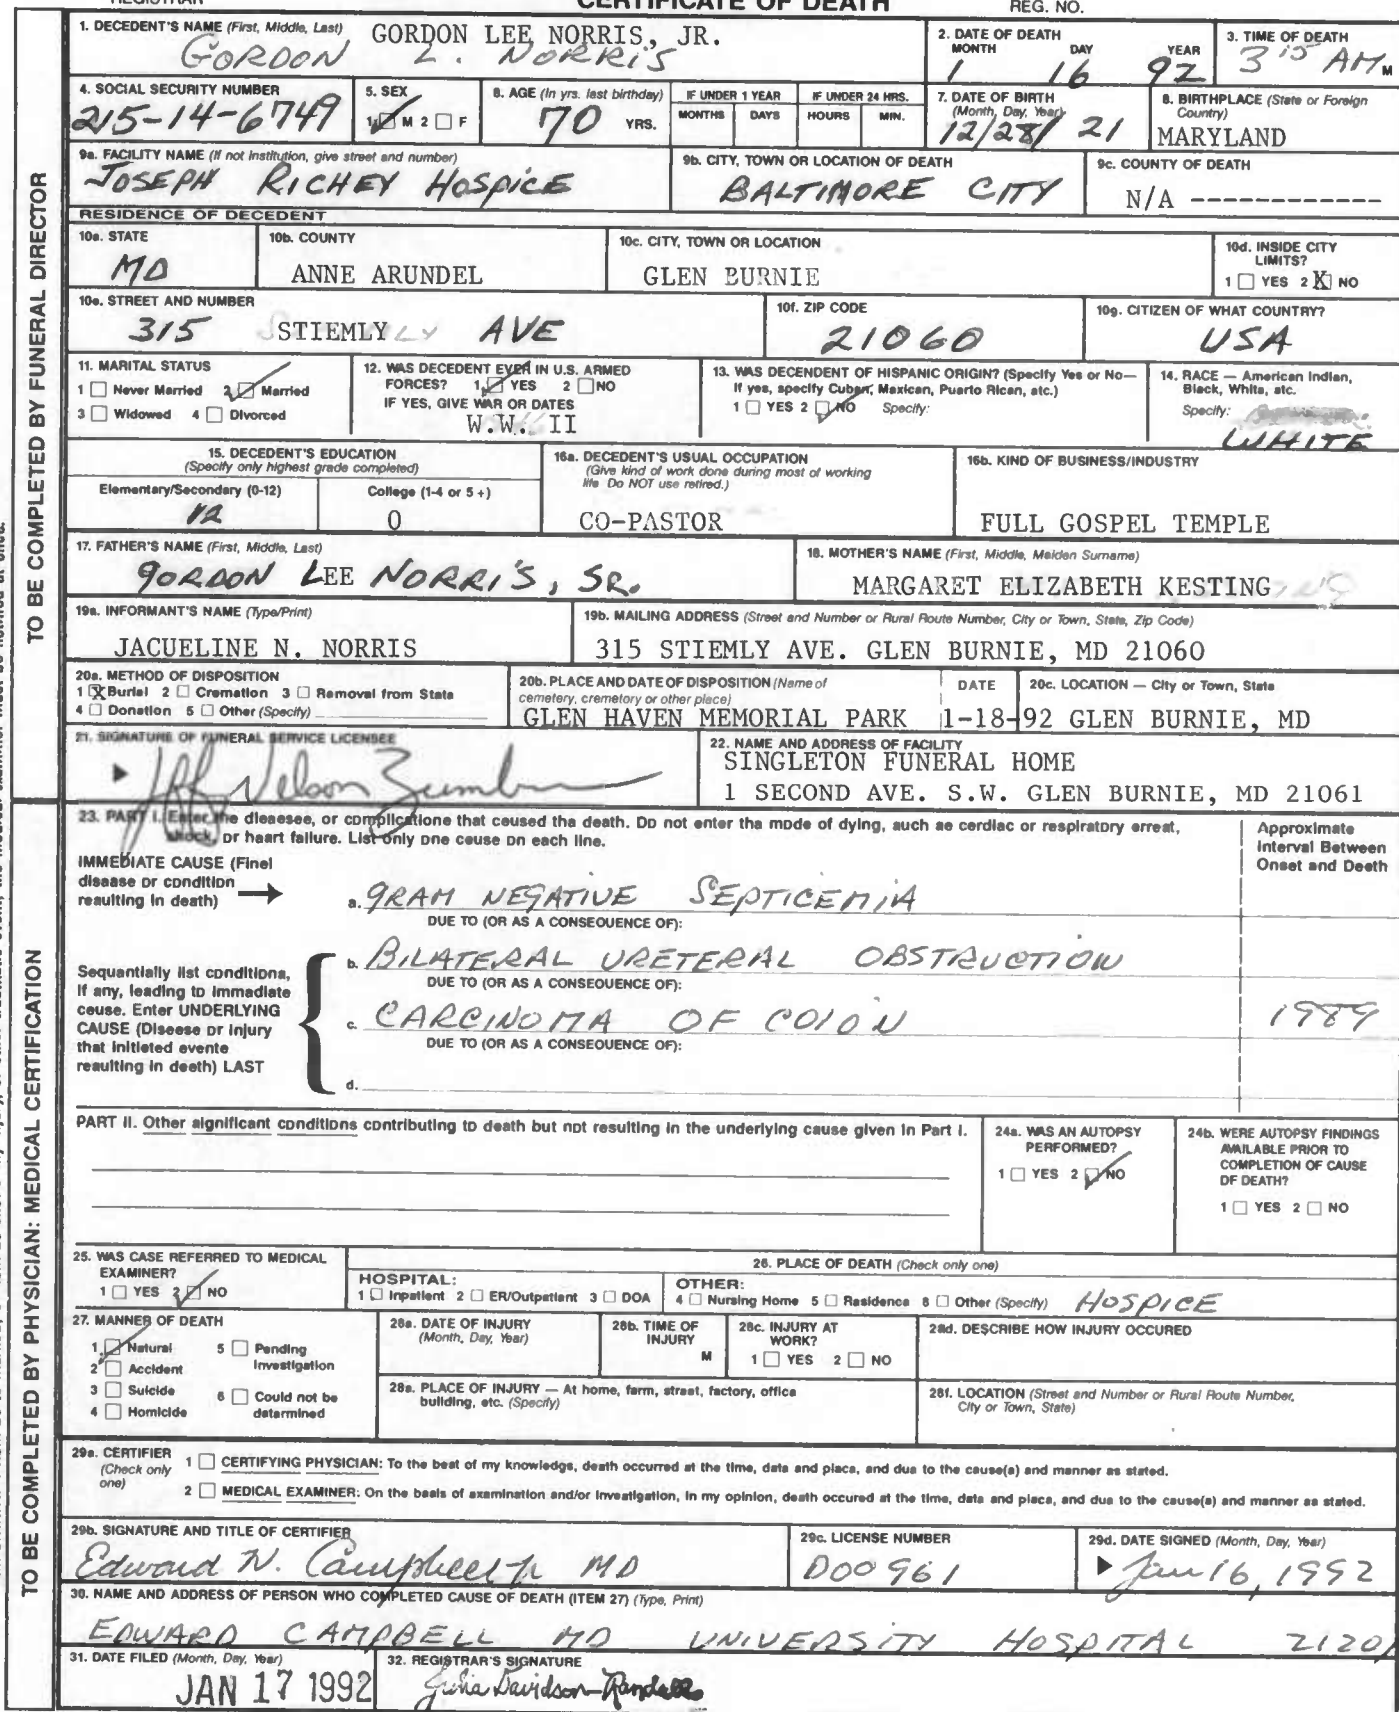 REGISTRAR
CERTIFICATE OF DEATH
REG. NO.
TO BE COMPLETED BY FUNERAL DIRECTOR
1. DECEDENT'S NAME (First, Middle, Last)
GORDON LEE NORRIS, JR.
GORDON L. NORRIS
2. DATE OF DEATH
MONTH DAY YEAR
1 16 92
3. TIME OF DEATH
3 15 AM M
4. SOCIAL SECURITY NUMBER
215-14-6749
5. SEX
1 M 2 F
6. AGE (In yrs. last birthday)
70 YRS.
IF UNDER 1 YEAR
MONTHS DAYS
IF UNDER 24 HRS.
HOURS MIN.
7. DATE OF BIRTH
(Month, Day, Year)
12/28/21
8. BIRTHPLACE (State or Foreign
Country)
MARYLAND
9a. FACILITY NAME (If not institution, give street and number)
JOSEPH RICHEY HOSPICE
9b. CITY, TOWN OR LOCATION OF DEATH
BALTIMORE CITY
9c. COUNTY OF DEATH
N/A ------------
RESIDENCE OF DECEDENT
10a. STATE
MD
10b. COUNTY
ANNE ARUNDEL
10c. CITY, TOWN OR LOCATION
GLEN BURNIE
10d. INSIDE CITY
LIMITS?
1 YES 2 X NO
10e. STREET AND NUMBER
315 STIEMLY AVE
10f. ZIP CODE
21060
10g. CITIZEN OF WHAT COUNTRY?
USA
11. MARITAL STATUS
1 Never Married 2 Married
3 Widowed 4 Divorced
12. WAS DECEDENT EVER IN U.S. ARMED
FORCES? 1 YES 2 NO
IF YES, GIVE WAR OR DATES
W.W. II
13. WAS DECENDENT OF HISPANIC ORIGIN? (Specify Yes or No—
If yes, specify Cuban, Maxican, Puarto Rican, atc.)
1 YES 2 NO Specify:
14. RACE — American Indian,
Black, White, atc.
Specify:
WHITE
15. DECEDENT'S EDUCATION
(Specify only highest grade completed)
Elementary/Secondary (0-12)
12
College (1-4 or 5 +)
0
16a. DECEDENT'S USUAL OCCUPATION
(Give kind of work done during most of working
life Do NOT use retired.)
CO-PASTOR
16b. KIND OF BUSINESS/INDUSTRY
FULL GOSPEL TEMPLE
17. FATHER'S NAME (First, Middle, Last)
GORDON LEE NORRIS, SR.
18. MOTHER'S NAME (First, Middle, Maiden Surname)
MARGARET ELIZABETH KESTING
19a. INFORMANT'S NAME (Type/Print)
JACUELINE N. NORRIS
19b. MAILING ADDRESS (Street and Number or Rural Route Number, City or Town, State, Zip Code)
315 STIEMLY AVE. GLEN BURNIE, MD 21060
20a. METHOD OF DISPOSITION
1 X Burial 2 Cremation 3 Ramoval from Stata
4 Donation 5 Other (Specify)
20b. PLACE AND DATE OF DISPOSITION (Name of
cemetery, cremetory or other place)
GLEN HAVEN MEMORIAL PARK
DATE
1-18-92
20c. LOCATION — City or Town, Stata
GLEN BURNIE, MD
21. SIGNATURE OF FUNERAL SERVICE LICENSEE
22. NAME AND ADDRESS OF FACILITY
SINGLETON FUNERAL HOME
1 SECOND AVE. S.W. GLEN BURNIE, MD 21061
TO BE COMPLETED BY PHYSICIAN: MEDICAL CERTIFICATION
23. PART I. Enter the diseasee, or complicatione that coused tha death. Do not enter tha mode of dying, auch ae cerdiac or respiratory errest,
shock, or haart failure. List only one ceuse on each line.
Approximate
Interval Between
Onset and Deeth
IMMEDIATE CAUSE (Finel
disaase or condition
reaulting in death)
a. GRAM NEGATIVE SEPTICEMIA
DUE TO (OR AS A CONSEQUENCE OF):
Sequantially list conditiona,
if any, leading to immadiate
ceuse. Enter UNDERLYING
CAUSE (Diseese or injury
that initieted evente
reaulting in deeth) LAST
b. BILATERAL URETERAL OBSTRUCTION
DUE TO (OR AS A CONSEQUENCE OF):
c. CARCINOMA OF COLON
1989
DUE TO (OR AS A CONSEOUENCE OF):
d.
PART II. Other aignificant conditions contributing to death but not resulting in the underlying cause given in Part I.
24a. WAS AN AUTOPSY
PERFORMED?
1 YES 2 NO
24b. WERE AUTOPSY FINDINGS
AVAILABLE PRIOR TO
COMPLETION OF CAUSE
OF DEATH?
1 YES 2 NO
25. WAS CASE REFERRED TO MEDICAL
EXAMINER?
1 YES 2 NO
26. PLACE OF DEATH (Check only one)
HOSPITAL:
1 Inpatient 2 ER/Outpatient 3 DOA
OTHER:
4 Nursing Home 5 Rasidenca 6 Other (Specify) HOSPICE
27. MANNER OF DEATH
1 Natural 5 Pending
Investigation
2 Accident
3 Suicide 6 Could not be
datarmined
4 Homicide
28a. DATE OF INJURY
(Month, Day, Year)
28b. TIME OF
INJURY
M
28c. INJURY AT
WORK?
1 YES 2 NO
28d. DESCRIBE HOW INJURY OCCURED
28e. PLACE OF INJURY — At home, farm, straat, factory, office
building, etc. (Specify)
28f. LOCATION (Street and Number or Rural Route Number,
City or Town, State)
29a. CERTIFIER
(Check only
one)
1 CERTIFYING PHYSICIAN: To the beat of my knowledge, death occurred at the time, data and placa, and dua to the cause(a) and manner as stated.
2 MEDICAL EXAMINER: On the basis of axamination and/or invaatigation, in my opinion, death occured at the time, data and placa, and due to the cause(a) and manner aa stated.
29b. SIGNATURE AND TITLE OF CERTIFIER
Edward N. Campbell Jr MD
29c. LICENSE NUMBER
D00961
29d. DATE SIGNED (Month, Day, Year)
Jan 16, 1992
30. NAME AND ADDRESS OF PERSON WHO COMPLETED CAUSE OF DEATH (ITEM 27) (Type, Print)
EDWARD CAMPBELL MD UNIVERSITY HOSPITAL 21201
31. DATE FILED (Month, Day, Year)
JAN 17 1992
32. REGISTRAR'S SIGNATURE
Julia Davidson-Randall